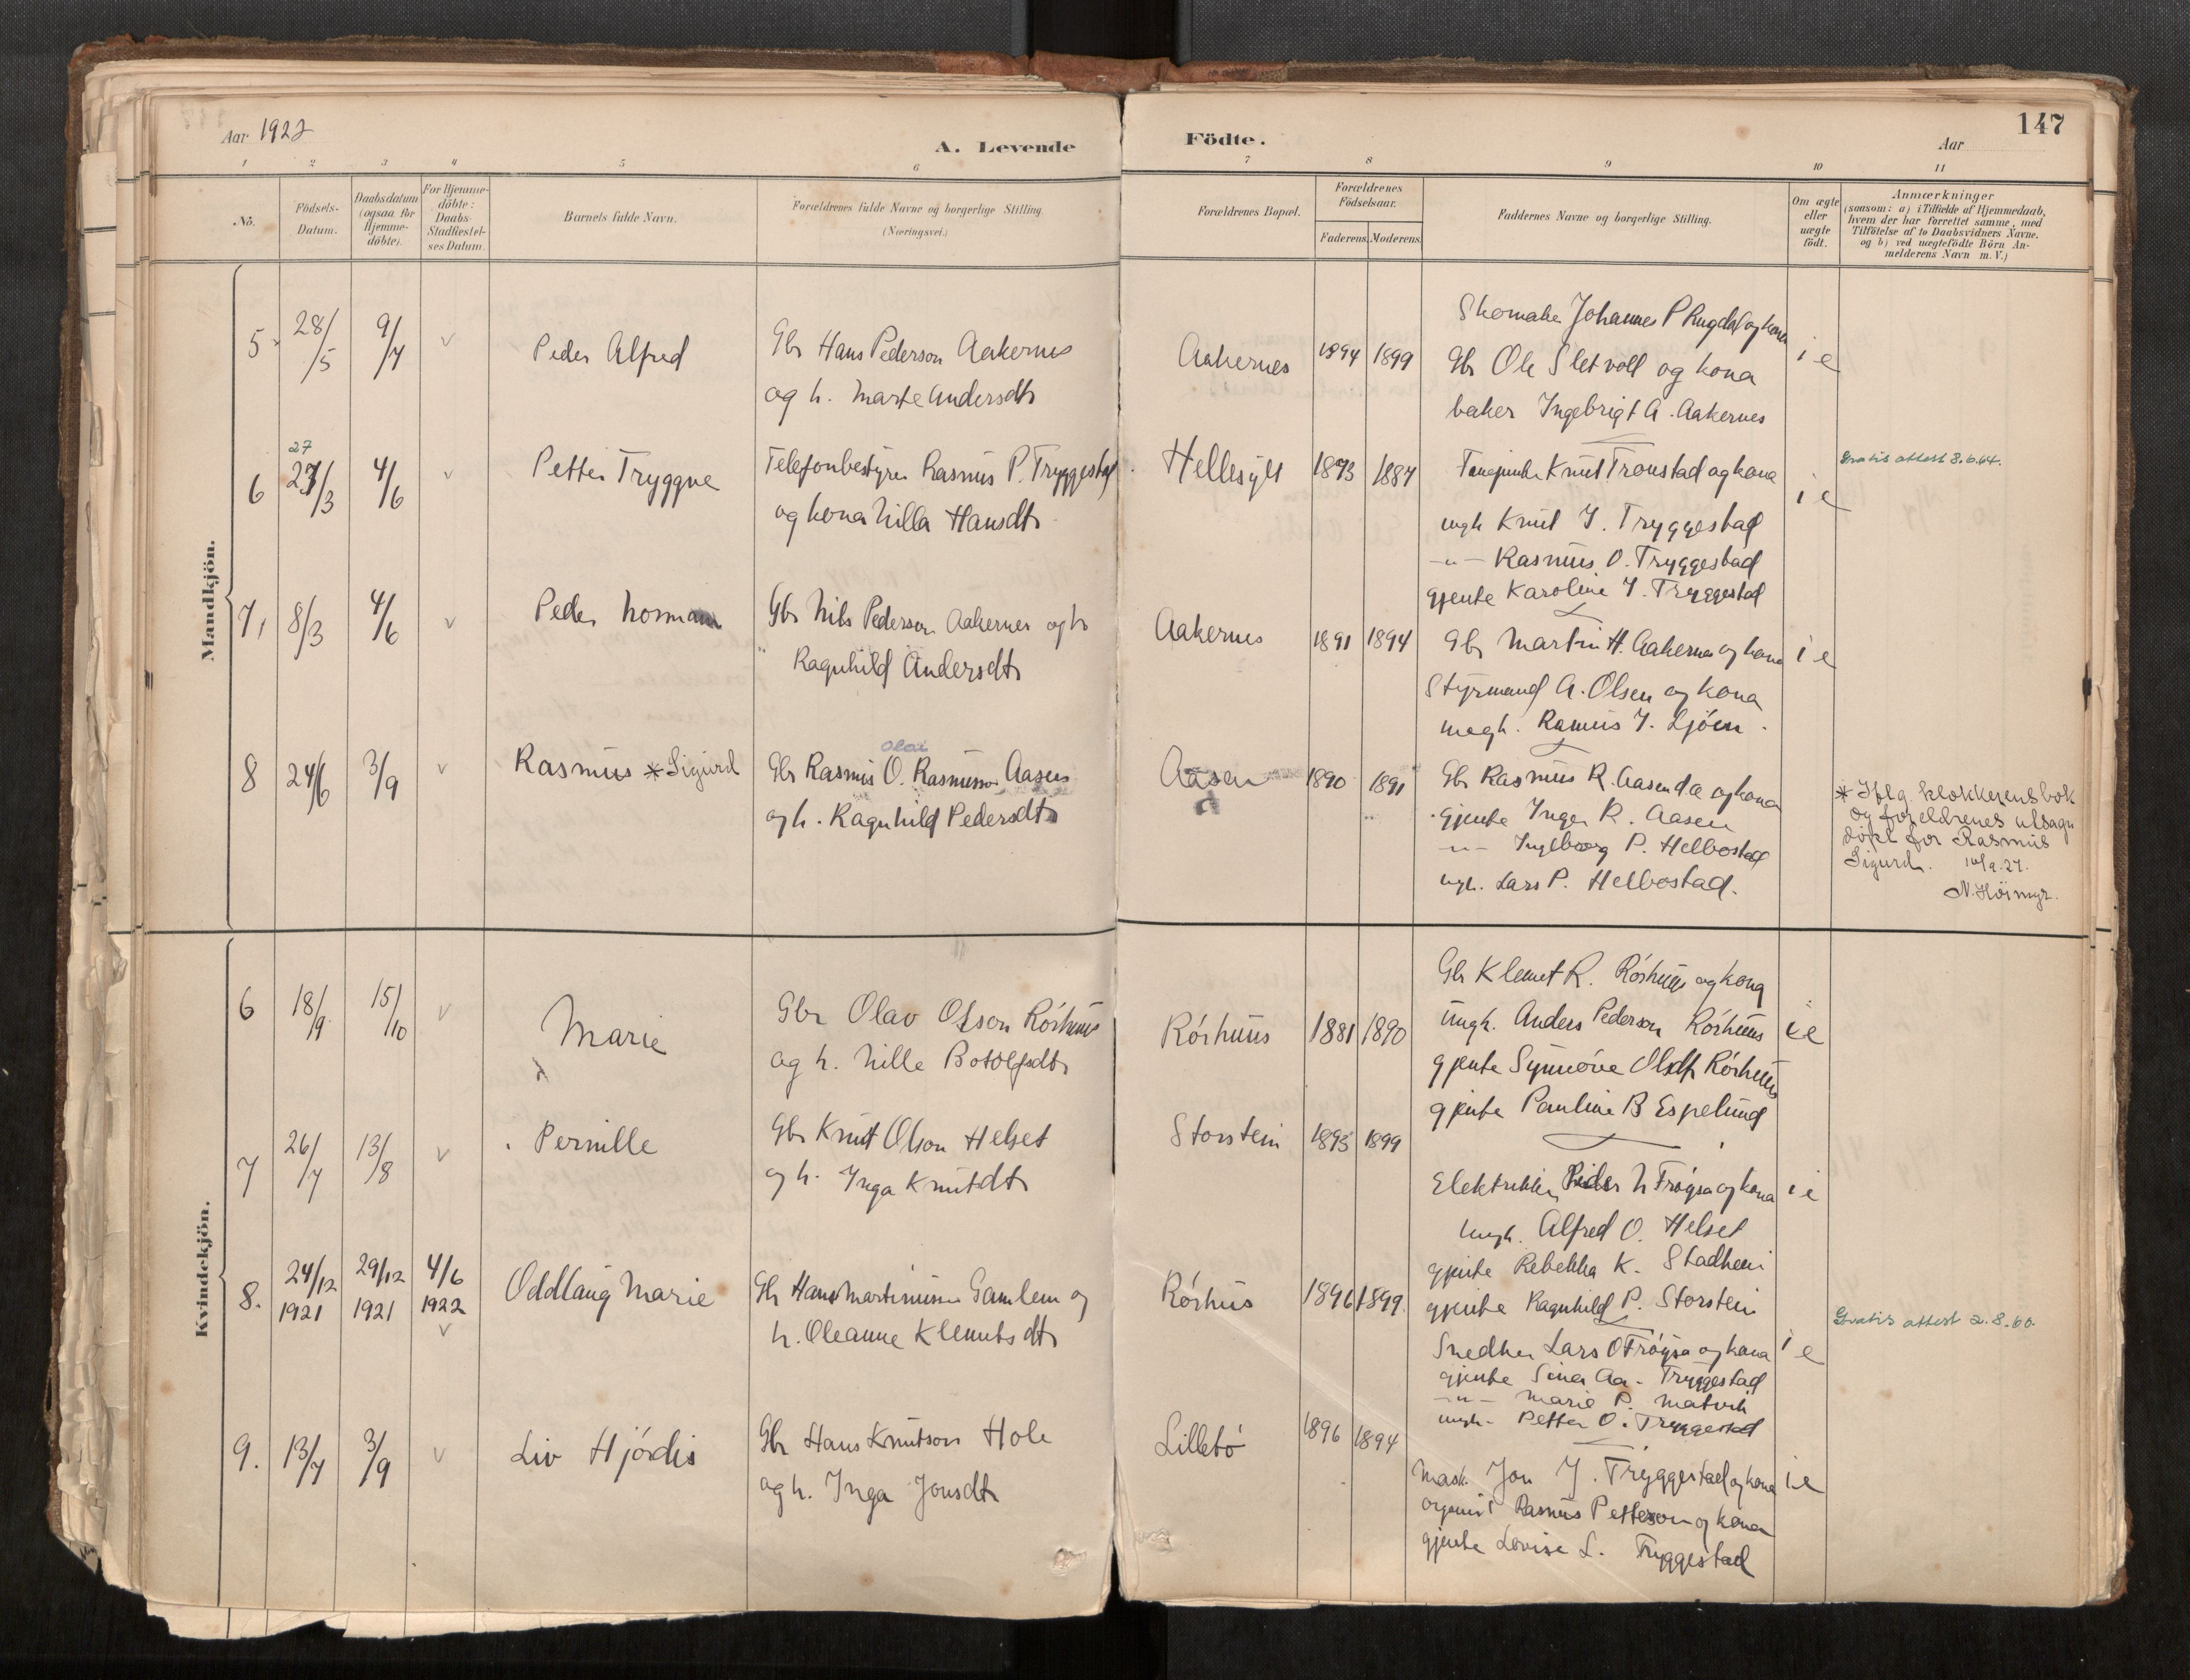 147
Aar 1922
A. Levende Födte.
Aar
1 2 3 4 5 6 7 8 9 10 11
No.
Födsels-
Datum.
Daabsdatum
(ogsaa for
Hjemme-
döbte).
For Hjemme-
döbte:
Daabs-
Stadfæstel-
ses Datum.
Barnets fulde Navn.
Forældrenes fulde Navne og borgerlige Stilling
(Næringsvei.)
Forældrenes Bopæl.
Forældrenes
Födselsaar.
Faderens. Moderens.
Faddernes Navne og borgerlige Stilling.
Om ægte
eller
uægte
födt.
Anmærkninger
(saasom: a) i Tilfælde af Hjemmedaab,
hvem der har forrettet samme, med
Tilföielse af to Daabsvidners Navne.
og b) ved uægtefödte Börn An-
melderens Navn m. V.)
Mandkjön.
5 28/5 9/7 v
Peder Alfred
Gbr Hans Pederson Aakernes
og h. Marte Andersdtr
Aakernes 1894 1899
Skomaker Johannes P Rugdal og kona
Gbr Ole Sletvoll og kona
baker Ingebrigt A. Aakernes
i e
6 27 27/3 4/6 v
Petter Tryggve
Telefonbestyrer Rasmus P. Tryggestad
og kona Nilla Hansdtr
Hellesylt 1893 1887
Knut Tronstad og kona
ungk Knut J. Tryggestad
-"- Rasmus O. Tryggestad
gjente Karoline J. Tryggestad
i e
Gratis attest 3.6.64.
7, 8/3 4/6 v
Peder Norman
Gbr Nils Pederson Aakernes og h
Ragnhild Andersdtr
Aakernes 1891 1894
Gbr Martin H. Aakernes og kona
Styrmand A. Olsen og kona
ungk. Rasmus J. Ljöen.
i e
8 24/6 3/9 v
Rasmus * Sigurd
Olai
Gbr Rasmus O. Rasmusson Aasen
og h. Ragnhild Pedersdtr
Aasen 1890 1891
Gbr Rasmus R. Aasen og kona
gjente Inger R. Aasen
-"- Ingeborg P. Helbostad
ungk. Lars P. Helbostad.
* Iflg. klokkerens bok
og foreldrenes utsagn
döpt for Rasmus
Sigurd. 10/9.27.
N. Höimyr.
Kvindekjön.
6 18/9 15/10 v
Marie
Gbr Olav Olson Rörhuus
og h. Nille Botolfsdtr
Rörhuus 1881 1890
Gbr Klemet R. Rörhuus og kona
ungk. Anders Pederson Rörhuus
gjente Synnöve Olsdtr Rörhuus
gjente Pauline B Espelund
i e
7 26/7 13/8 v
Pernille
Gbr Knut Olson Helset
og h. Inga Knutdtr
Storstein 1895 1899
Elektriker Peder N Fröysa og kona
ungk. Alfred O. Helset
gjente Rebekka K. Stadheim
gjente Ragnhild P. Storstein
i e
8. 24/12 1921 29/12 1921 4/6 1922 v
Oddlaug Marie
Gbr Hans Martinusson Gamlem og
h. Oleanne Klemetsdtr
Rörhus 1896 1899.
Snedker Lars O Fröysa og kona
gjente Sina Aa. Tryggestad
-"- Marie P. Matvik
ungk. Petter O. Tryggestad
i e
Gratis attest 2.8.60.
9. 13/7 3/9 v
Liv Hjördis
Gbr Hans Knutson Hole
og h. Inga Jonsdtr
Lillebö 1896 1894
Mask. Jon J. Tryggestad og kona
organist Rasmus Petterson og kona
gjente Lovise L. Tryggestad
i e